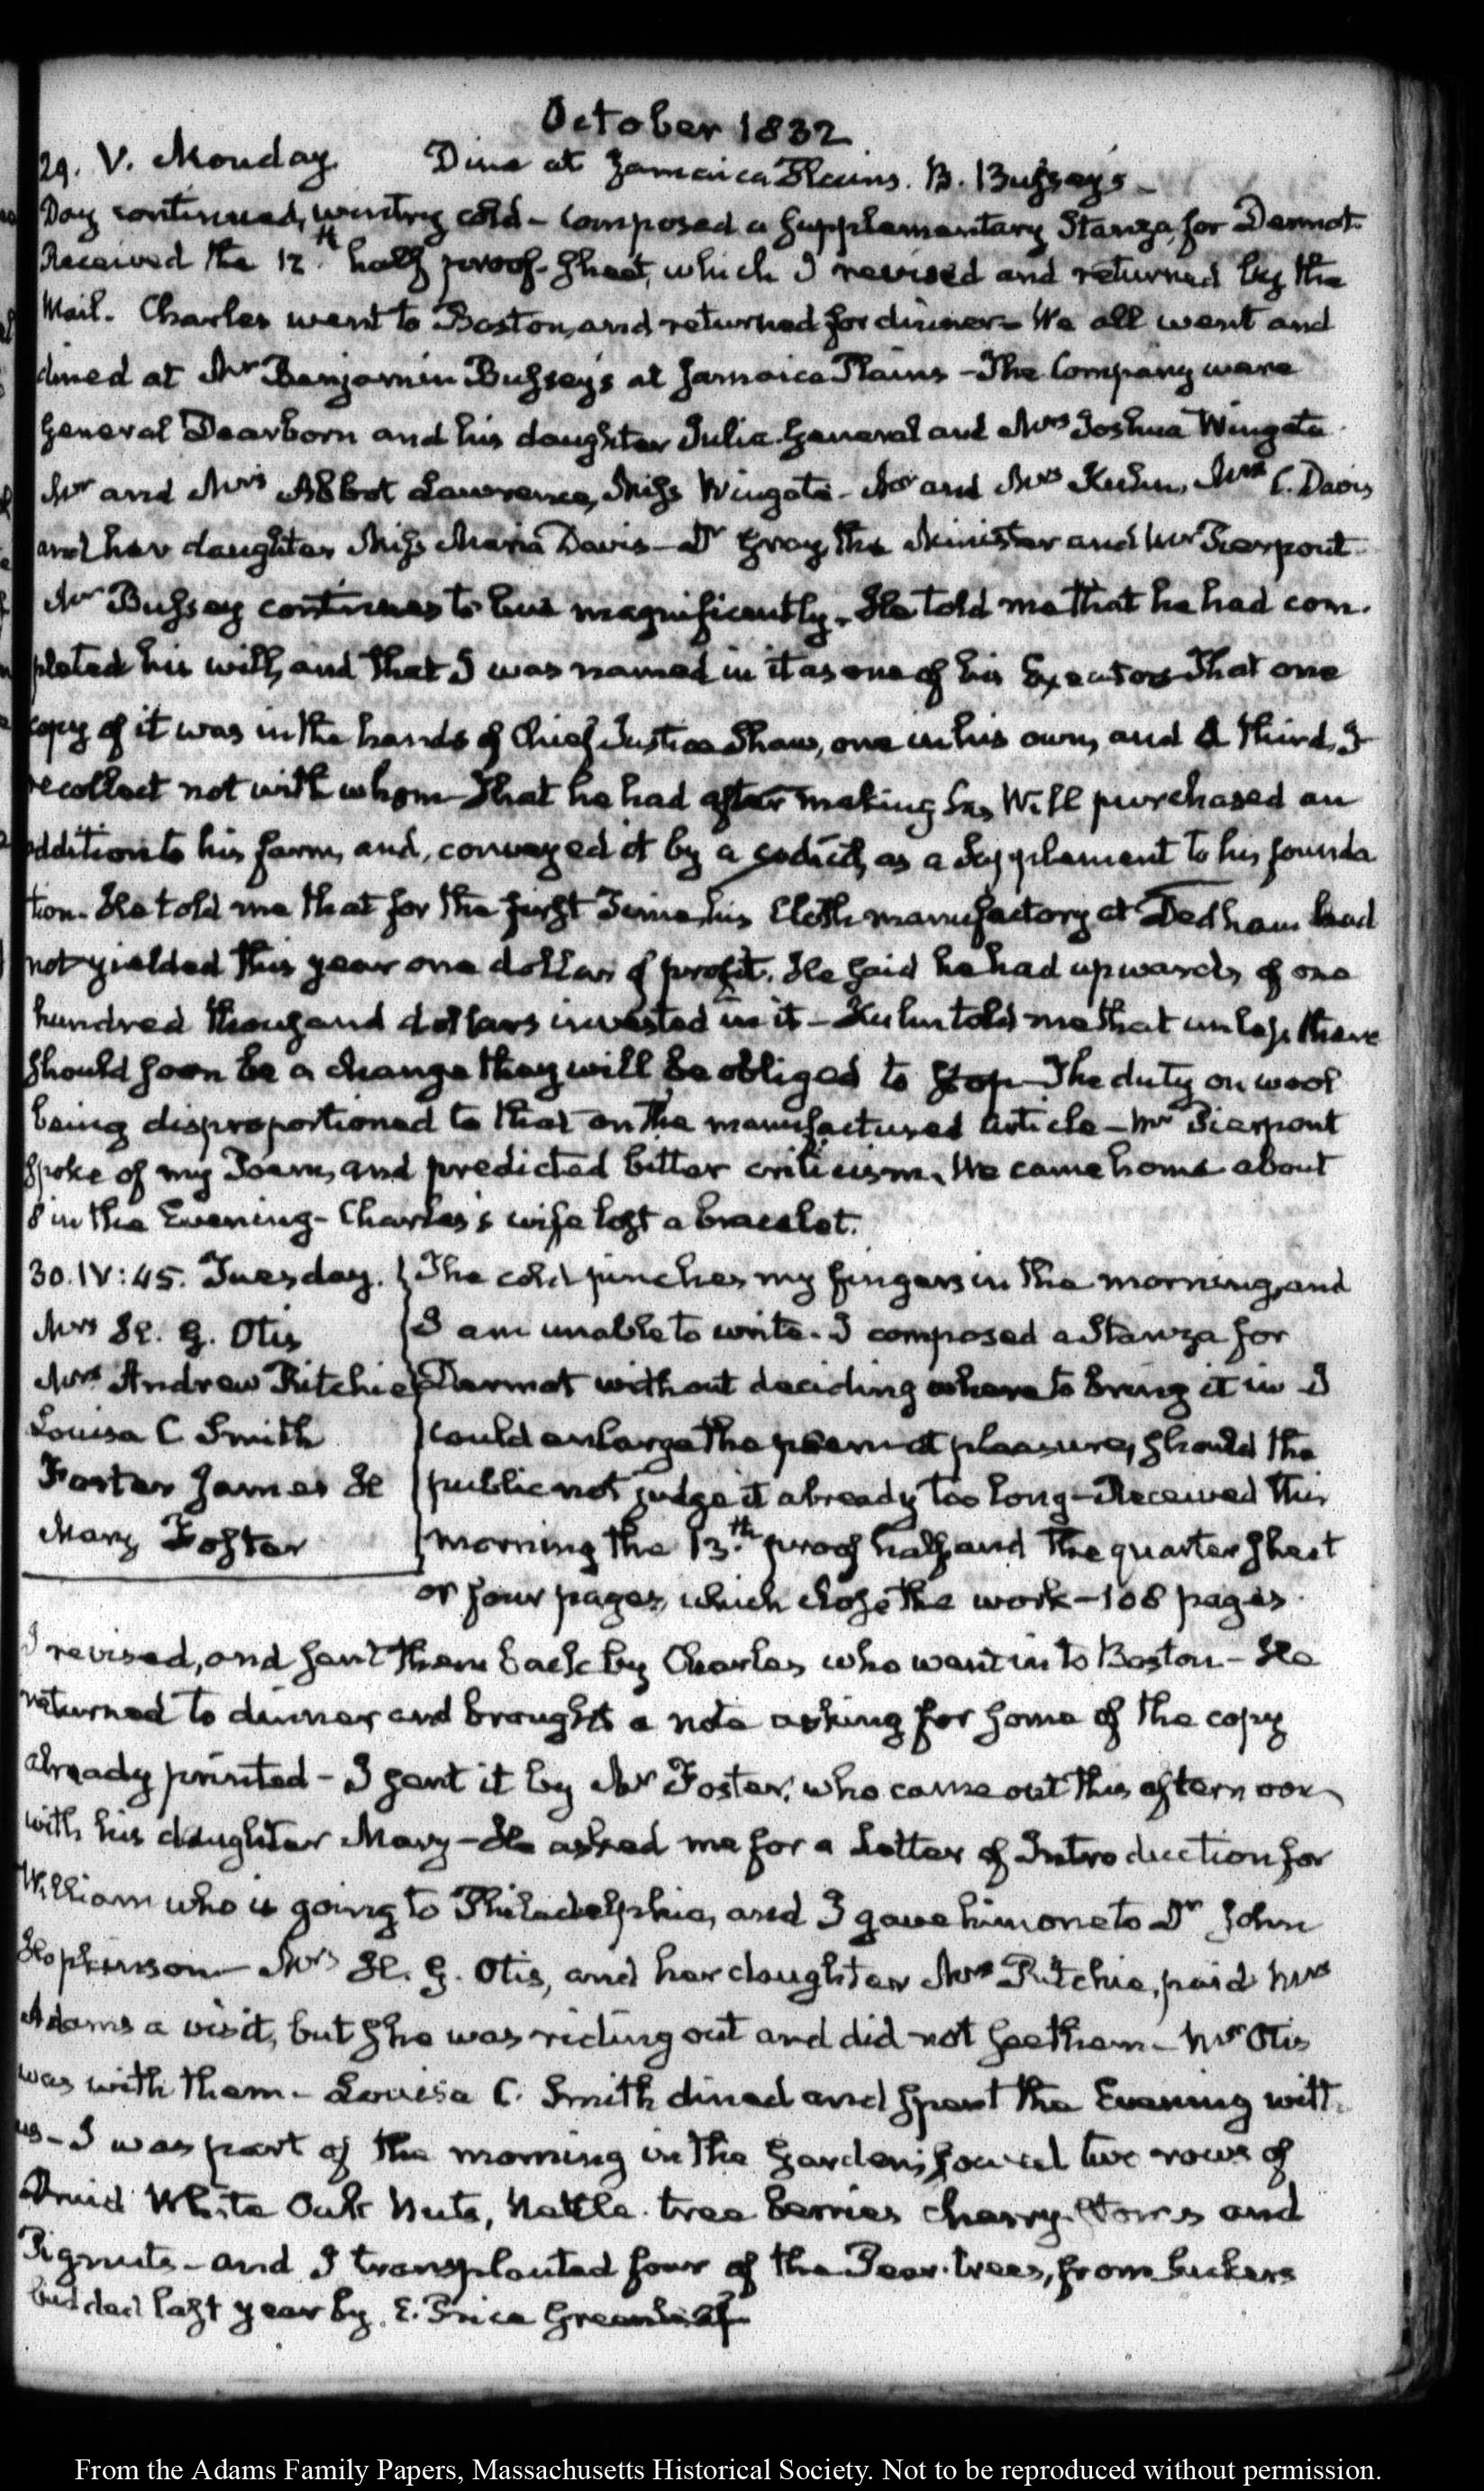 October 1832
29. V. Monday. Dine at Jamaica Plains. B. Bussey's –
Day continued, wintry cold – Composed a supplementary Stanza, for Dermot.
Received the 12th half proof-sheet, which I revised and returned by the
Mail. Charles went to Boston, and returned for dinner – We all went and
dined at Mr Benjamin Bussey's at Jamaica Plains – The Company were
General Dearborn and his daughter Julia. General and Mrs Joshua Wingate.
Mr and Mrs Abbot Lawrence, Miss Wingate – Mr and Mrs Kuhn, Mrs C. Davis
and her daughter Miss Maria Davis – Dr Gray, the Minister and Mr Pierpont.
Mr Bussey continues to live magnificently. He told me that he had com-
pleted his will, and that I was named in it as one of his Executors That one
copy of it was in the hands of Chief Justice Shaw, one in his own, and a third, I
recollect not with whom – That he had after making his Will purchased an
addition to his farm, and, conveyed it by a codicil, as a Supplement to his founda
tion. He told me that for the first Time, his Cloth manufactory at Dedham had
not yielded this year one dollar of profit. He said he had upwards of one
hundred thousand dollars invested in it – Kuhn told me that unless there
should soon be a change they will be obliged to stop – The duty on wool
being disproportioned to that on the manufactured article – Mr Pierpont
spoke of my Poem, and predicted bitter criticism. We came home about
8 in the Evening – Charles's wife lost a bracelet.
30. IV:45. Tuesday. The cold pinches my fingers in the morning, and
Mrs H. G. Otis I am unable to write. I composed a Stanza for
Mrs Andrew Ritchie Dermot without deciding where to bring it in I
Louisa C Smith could enlarge the poem at pleasure, should the
Foster James H public not judge it already too long – Received this
Mary Foster morning the 13th proof half, and the quarter sheet
or four pages, which close the work – 108 pages.
I revised, and sent them back by Charles who went in to Boston – He
returned to dinner and brought a note asking for some of the copy
already printed – I sent it by Mr Foster, who came out this afternoon
with his daughter Mary – He asked me for a Letter of Introduction for
William who is going to Philadelphia, and I gave him one to Dr John
Hopkinson – Mrs H. G. Otis, and her daughter Mrs Ritchie, paid Mrs
Adams a visit, but she was riding out and did not see them – Mr Otis
was with them – Louisa C. Smith dined and spent the Evening with
us – I was part of the morning in the Garden; sowed two rows of
Druid White Oak Nuts, Nettle-tree berries cherry-stones and
Pignuts – and I transplanted four of the Pear-trees, from suckers
budded last year by E. Price Greenleaf
From the Adams Family Papers, Massachusetts Historical Society. Not to be reproduced without permission.